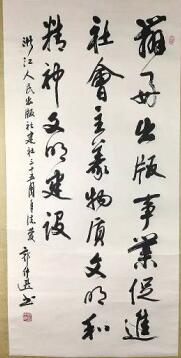 办好出版事業促進
社會主義物质文明和
精神文明建設
浙江人民出版社建社三十五周年誌慶
郭仲選书